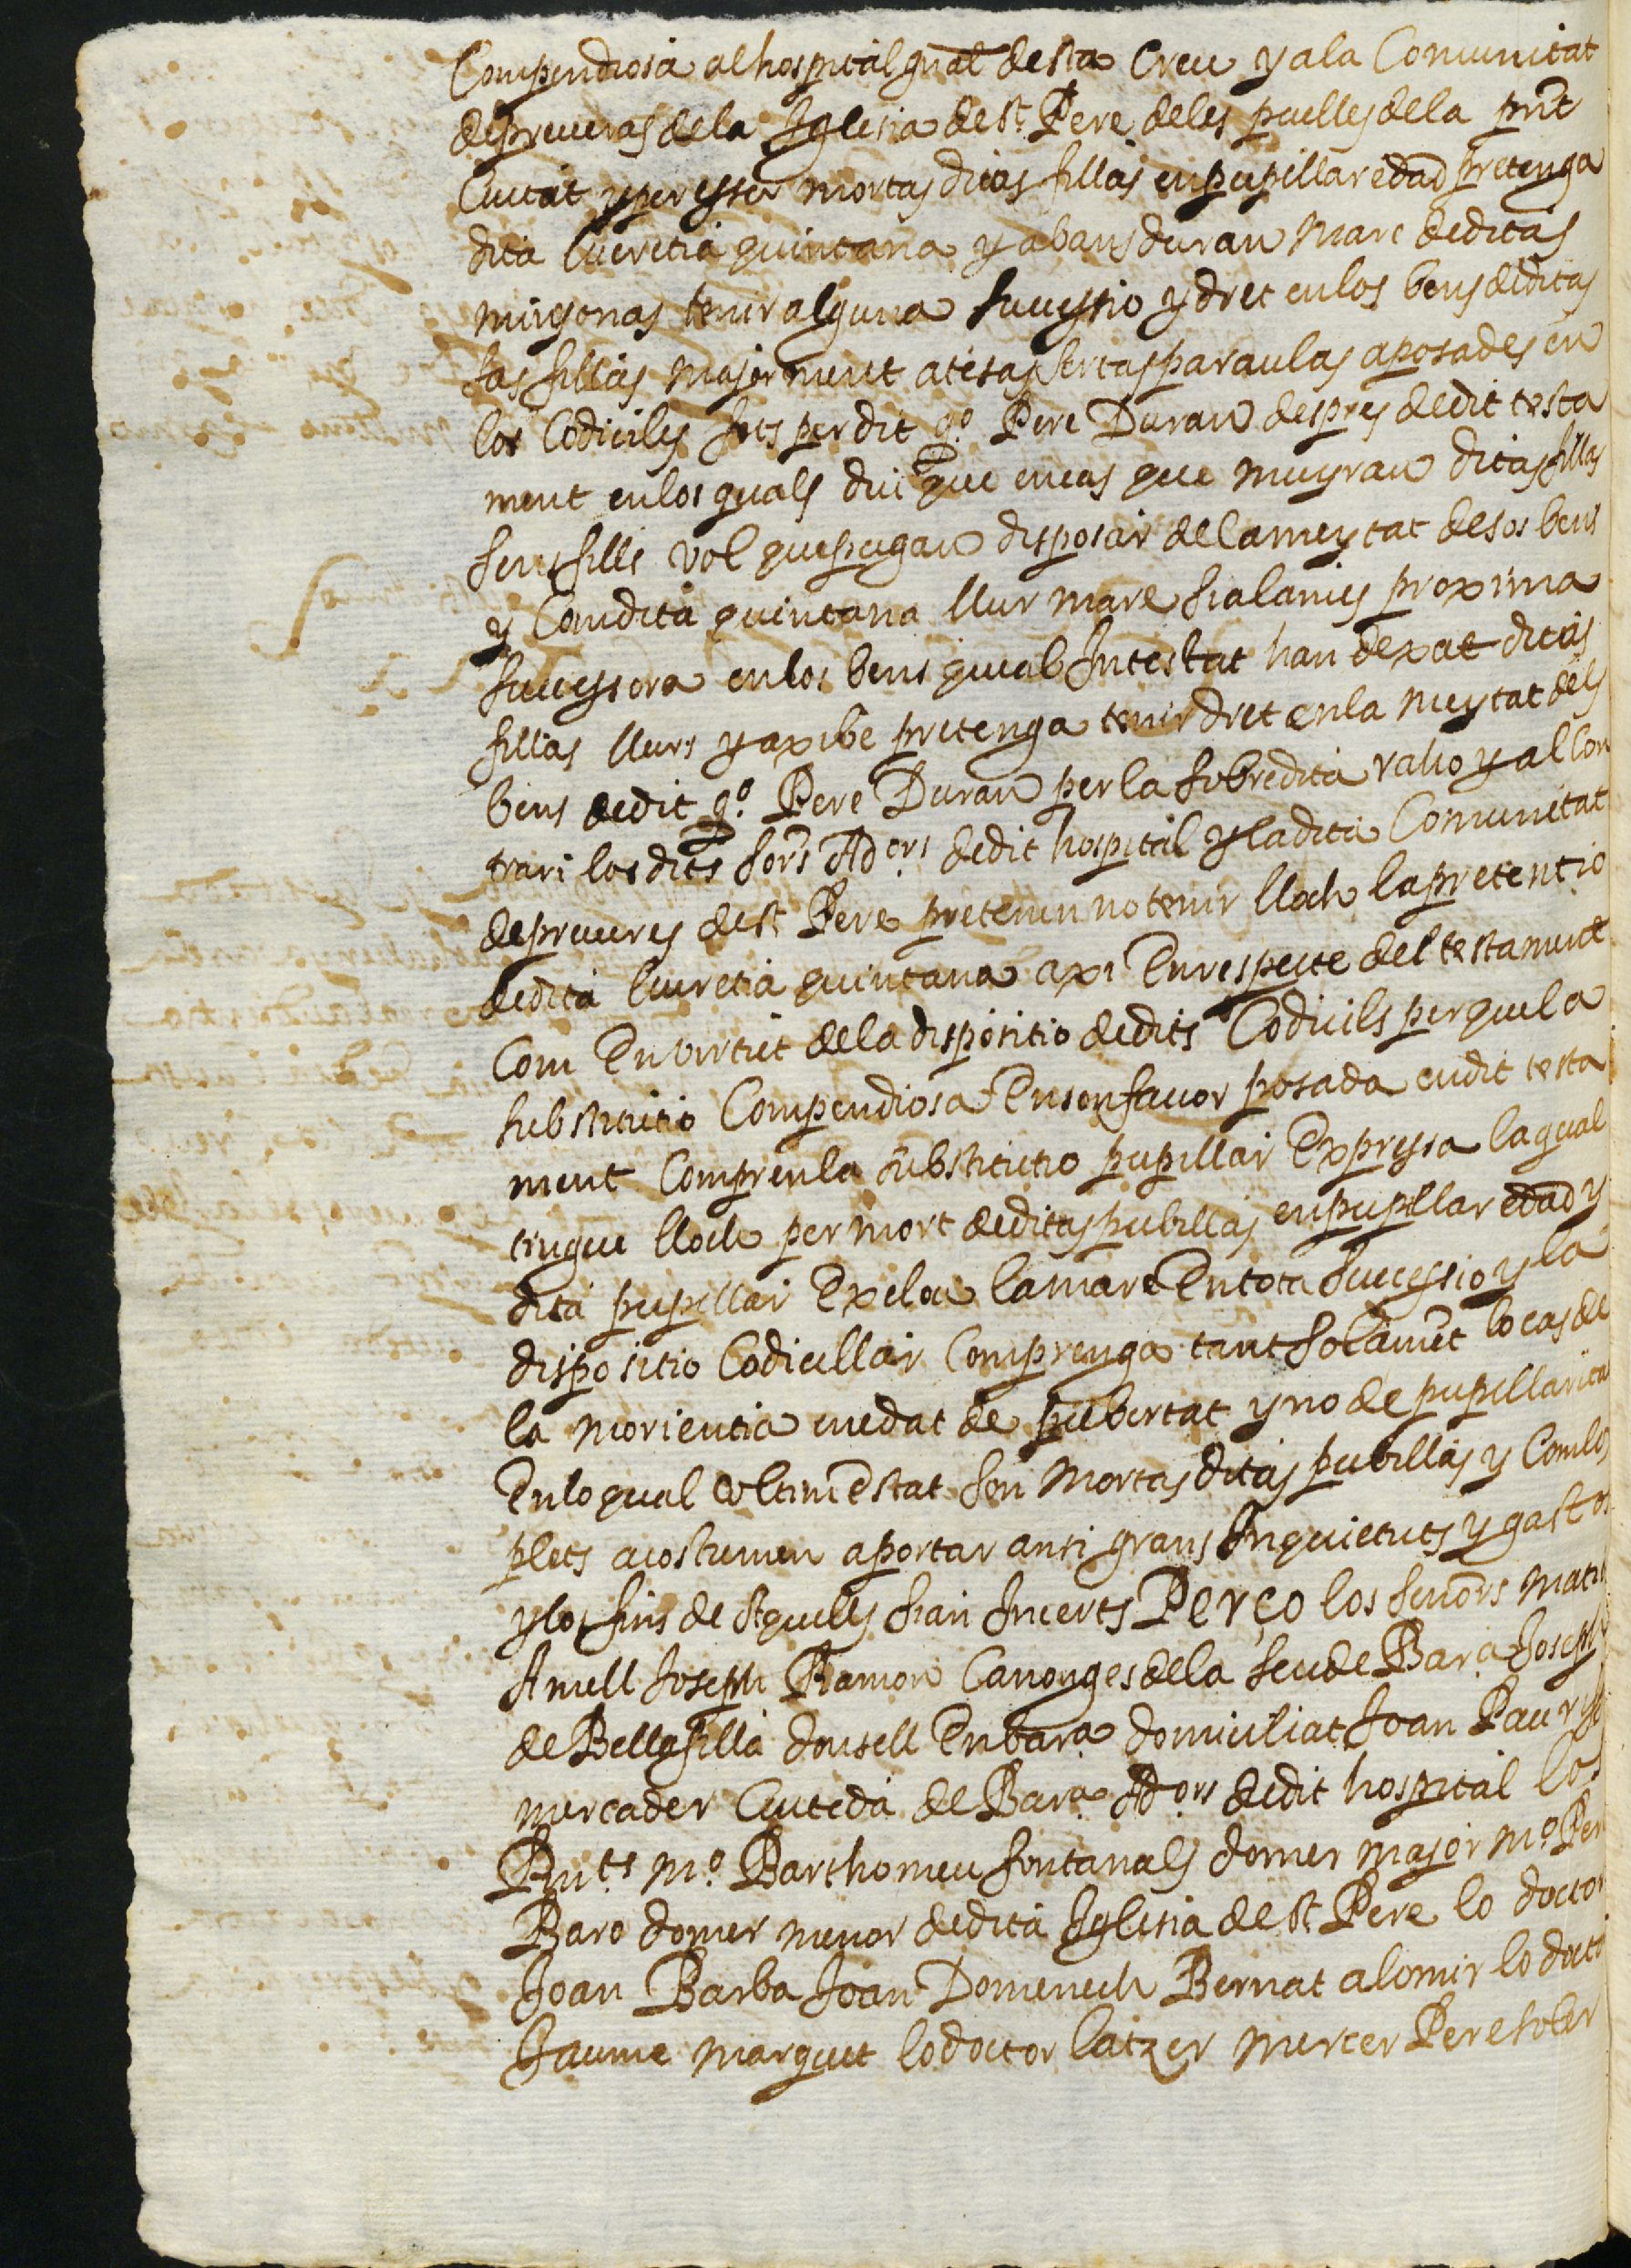 Compendiosa al hospital gñal de sta Creu y a la Comunitat
de preveras de la Iglesia de St. Pere deles puelles de la pnt
Ciutat y per esser mortas ditas fillas en pupillar edad pretenga
dita Lucretia quintana y abans duran mare de ditas
minyonas tenir alguna successio y dret en los bens de ditas
sas fillas majorment atesas sertas paraulas aposades en
los Codicils fets per dit qº. Pere Duran despres de dit testa
ment en los quals diu que en cas que muyran ditas fillas
sens fills vol que pugan disposar de la meytat de sos bens
y Com dita quintana llur mare sia la mes proxima
successora en los bens que ab Intestat han dexat ditas
fillas llurs y axi be pretenga tenir dret en la meytat dels
bens de dit qº. Pere Duran per la sobredita raho y al Con
trari los dits sors Adors. de dit hospital y la dita Comunitat
de preveres de St. Pere pretenen no tenir lloch la pretentio
de dita Lucretia quintana axi En respecte del testament
Com En virtut de la dispositio de dits Codicils per que la
substitutio Compendiosa En son favor posada en dit testa
ment Compren la substitutio pupillar Expressa la qual
tingue lloch per mort de ditas pubillas en pupillar edad y
dita pupillar Exclou la mare En tota successio y la
dispositio Codicillar Comprenga tant solament lo cas de
la morientia en edat de pubertat y no de pupillarita
En lo qual ultim Estat son mortas ditas pubillas y Com los
plets acostumen aportar ansi grans Inquietuts y gastos
y los fins de Aquells sian Incerts Perço los senors
Amell Joseph Ramon Canonges de la seu de Bara. Joseph
de Bellafilla donsell En bara. domiciliat Joan Pau
mercader Ciutedà de Bara. Adors. de dit hospital los
Rnts. mº. Barthomeu fontanals domer major mº. Pere
Baro domer menor de dita Iglesia de St. Pere lo doctor
Joan Barba Joan Domenech Bernat alomir lo doctor
Jaume marquet lo doctor latzer mercer Pere soler